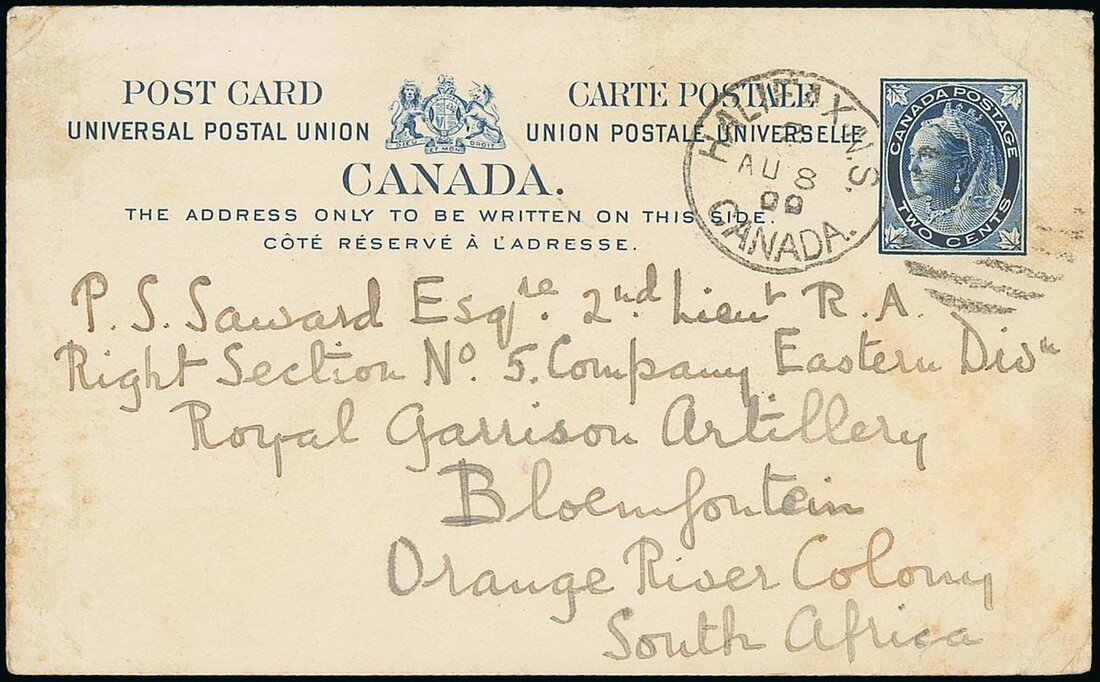 POST CARD CARTE POSTALE
UNIVERSAL POSTAL UNION UNION POSTALE UNIVERSELLE
DIEU ET MON DROIT
CANADA.
THE ADDRESS ONLY TO BE WRITTEN ON THIS SIDE.
CÔTÉ RÉSERVÉ À L'ADRESSE.
HALIFAX N.S.
AU 8
00
CANADA.
CANADA POSTAGE
TWO CENTS
P. S. Saward Esqre. 2nd Lieut R. A.
Right Section No. 5. Company Eastern Divn
Royal Garrison Artillery
Bloemfontein
Orange River Colony
South Africa